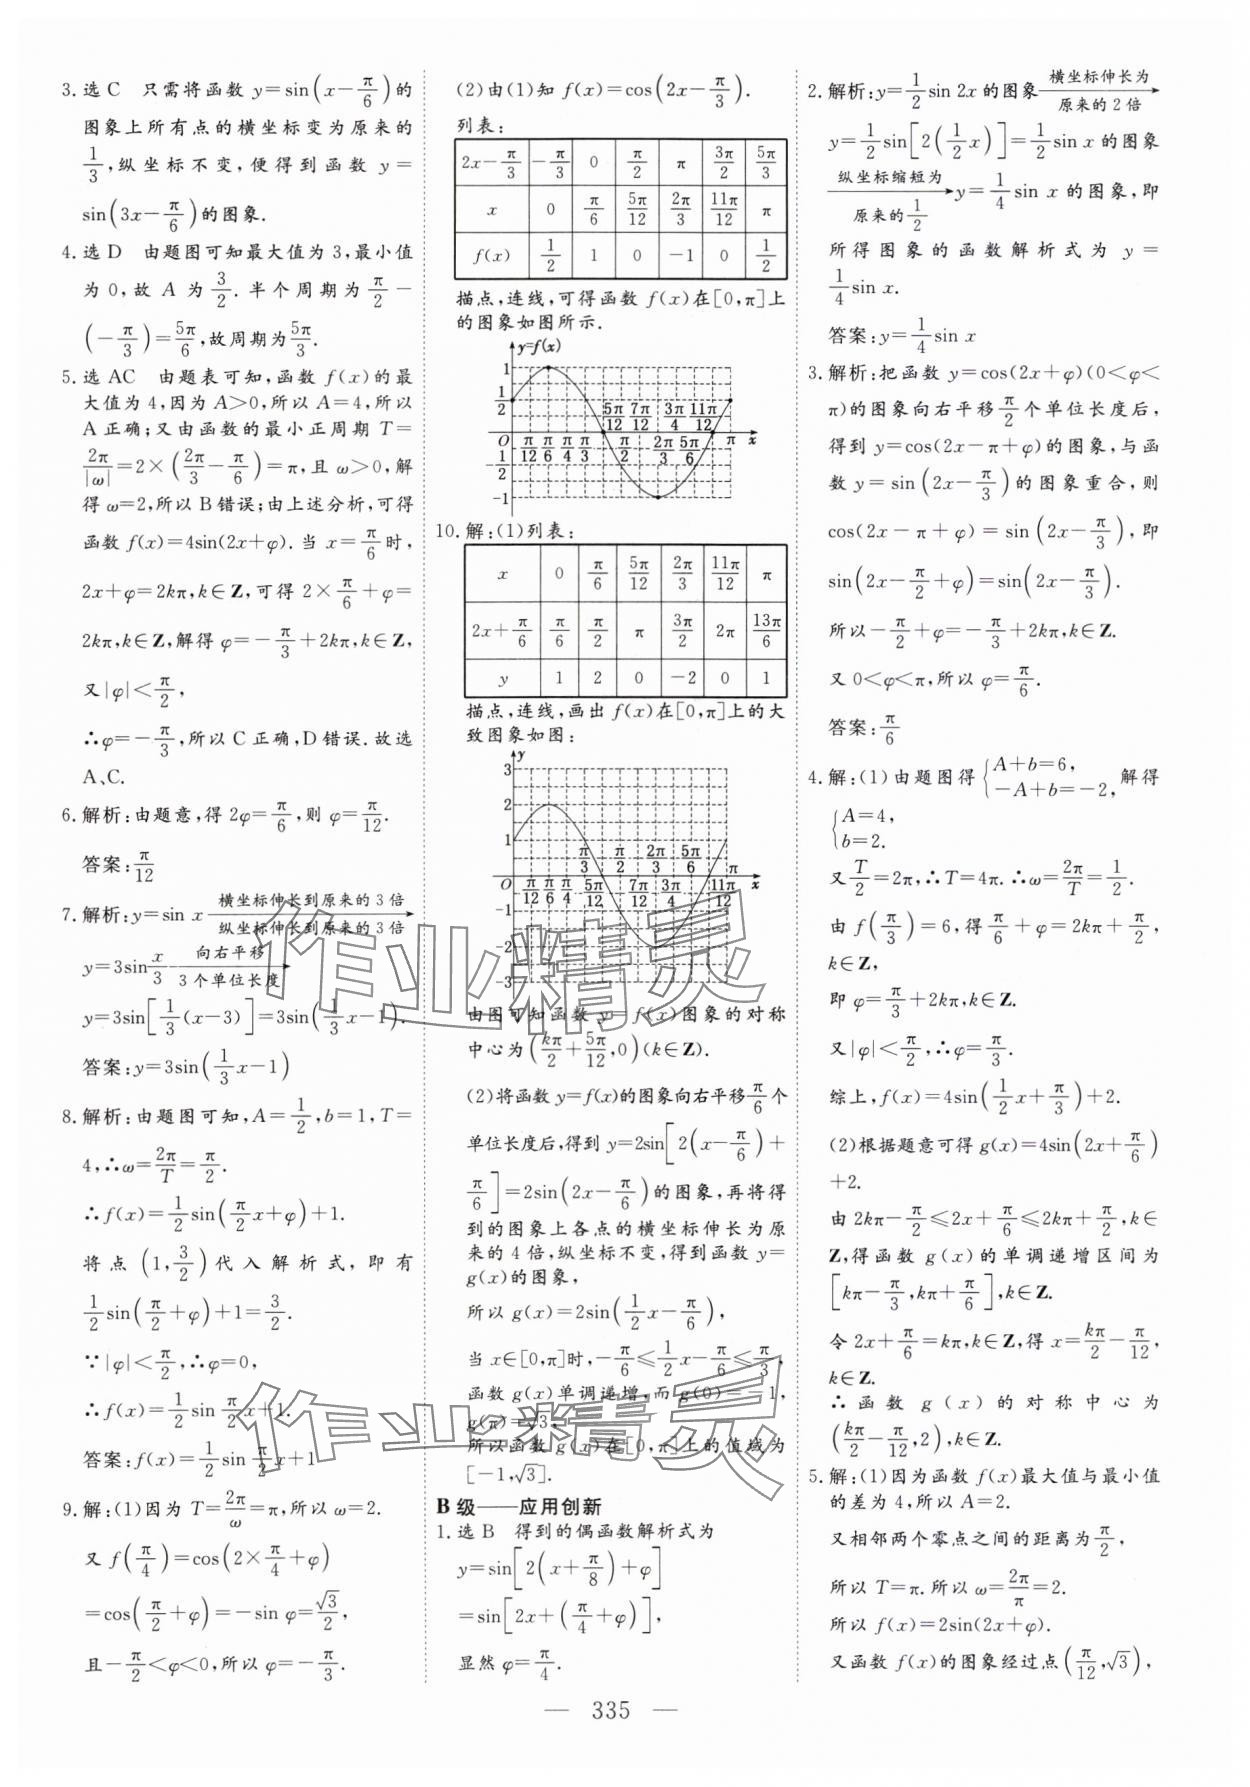 3. 选 C 只需将函数 y=sin(x-π/6)的
图象上所有点的横坐标变为原来的
1/3,纵坐标不变,便得到函数 y=
sin(3x-π/6)的图象.
4. 选 D 由题图可知最大值为 3,最小值
为 0,故 A 为 3/2. 半个周期为 π/2-
(-π/3)=5π/6,故周期为5π/3.
5. 选 AC 由题表可知,函数 f(x)的最
大值为 4,因为 A>0,所以 A=4,所以
A 正确;又由函数的最小正周期 T=
2π/|ω|=2×(2π/3-π/6)=π,且 ω>0,解
得 ω=2,所以 B 错误;由上述分析,可得
函数 f(x)=4sin(2x+φ). 当 x=π/6时,
2x+φ=2kπ,k∈Z,可得 2×π/6+φ=
2kπ,k∈Z,解得 φ=-π/3+2kπ,k∈Z,
又|φ|<π/2,
∴φ=-π/3,所以 C 正确,D 错误. 故选
A、C.
6. 解析:由题意,得 2φ=π/6,则 φ=π/12.
答案:π/12
7. 解析:y=sin x 横坐标伸长到原来的 3 倍
纵坐标伸长到原来的 3 倍
y=3sin x/3 向右平移
3 个单位长度
y=3sin[1/3(x-3)]=3sin(1/3x-1).
答案:y=3sin(1/3x-1)
8. 解析:由题图可知,A=1/2,b=1,T=
4,∴ω=2π/T=π/2.
∴f(x)=1/2sin(π/2x+φ)+1.
将点(1,3/2)代入解析式,即有
1/2sin(π/2+φ)+1=3/2.
∵|φ|<π/2,∴φ=0,
∴f(x)=1/2sin π/2x+1.
答案:f(x)=1/2sin π/2x+1
9. 解:(1)因为 T=2π/ω=π,所以 ω=2.
又 f(π/4)=cos(2×π/4+φ)
=cos(π/2+φ)=-sin φ=√3/2,
且-π/2<φ<0,所以 φ=-π/3.
(2)由(1)知 f(x)=cos(2x-π/3).
列表:
2x-π/3 -π/3 0 π/2 π 3π/2 5π/3
x 0 π/6 5π/12 2π/3 11π/12 π
f(x) 1/2 1 0 -1 0 1/2
描点,连线,可得函数 f(x)在[0,π]上
的图象如图所示.
y=f(x)
1
1/2
5π/12 7π/12 3π/4 11π/12
O π/12 π/6 π/4 π/3 π/2 2π/3 5π/6 π x
-1/2
-1
10. 解:(1)列表:
x 0 π/6 5π/12 2π/3 11π/12 π
2x+π/6 π/6 π/2 π 3π/2 2π 13π/6
y 1 2 0 -2 0 1
描点,连线,画出 f(x)在[0,π]上的大
致图象如图:
y
3
2
1
π/3 π/2 2π/3 5π/6 π
O π/12 π/6 π/4 5π/12 7π/12 3π/4 11π/12 x
-1
-2
-3
由图可知函数 y=f(x)图象的对称
中心为(kπ/2+5π/12,0)(k∈Z).
(2)将函数 y=f(x)的图象向右平移π/6个
单位长度后,得到 y=2sin[2(x-π/6)+
π/6]=2sin(2x-π/6)的图象,再将得
到的图象上各点的横坐标伸长为原
来的 4 倍,纵坐标不变,得到函数 y=
g(x)的图象,
所以 g(x)=2sin(1/2x-π/6),
当 x∈[0,π]时,-π/6≤1/2x-π/6≤π/3,
函数 g(x)单调递增,而 g(0)=-1,
g(π)=√3,
所以函数 g(x)在[0,π]上的值域为
[-1,√3].
B 级——应用创新
1. 选 B 得到的偶函数解析式为
y=sin[2(x+π/8)+φ]
=sin[2x+(π/4+φ)],
显然 φ=π/4.
2. 解析:y=1/2sin 2x 的图象 横坐标伸长为
原来的 2 倍
y=1/2sin[2(1/2x)]=1/2sin x 的图象
纵坐标缩短为
原来的1/2
y=1/4sin x 的图象,即
所得图象的函数解析式为 y=
1/4sin x.
答案:y=1/4sin x
3. 解析:把函数 y=cos(2x+φ)(0<φ<
π)的图象向右平移π/2个单位长度后,
得到 y=cos(2x-π+φ)的图象,与函
数 y=sin(2x-π/3)的图象重合,则
cos(2x-π+φ)=sin(2x-π/3),即
sin(2x-π/2+φ)=sin(2x-π/3).
所以-π/2+φ=-π/3+2kπ,k∈Z.
又 0<φ<π,所以 φ=π/6.
答案:π/6
4. 解:(1)由题图得{A+b=6, -A+b=-2,解得
{A=4, b=2.
又T/2=2π,∴T=4π. ∴ω=2π/T=1/2.
由 f(π/3)=6,得π/6+φ=2kπ+π/2,
k∈Z,
即 φ=π/3+2kπ,k∈Z.
又|φ|<π/2,∴φ=π/3.
综上,f(x)=4sin(1/2x+π/3)+2.
(2)根据题意可得 g(x)=4sin(2x+π/6)
+2.
由 2kπ-π/2≤2x+π/6≤2kπ+π/2,k∈
Z,得函数 g(x)的单调递增区间为
[kπ-π/3,kπ+π/6],k∈Z.
令 2x+π/6=kπ,k∈Z,得 x=kπ/2-π/12,
k∈Z.
∴函数 g(x)的对称中心为
(kπ/2-π/12,2),k∈Z.
5. 解:(1)因为函数 f(x)最大值与最小值
的差为 4,所以 A=2.
又相邻两个零点之间的距离为π/2,
所以 T=π. 所以 ω=2π/π=2.
所以 f(x)=2sin(2x+φ).
又函数 f(x)的图象经过点(π/12,√3),
— 335 —
作业精灵
作业精灵